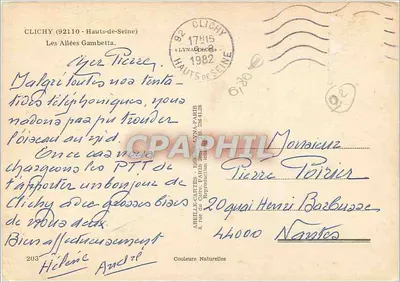 CLICHY (92110 - Hauts-de-Seine)
Les Allées Gambetta.
92 CLICHY
17H15
1982
HAUTS DE SEINE
Cher Pierre,
Malgré toutes nos tenta-
tives téléphoniques, nous
n'avons pas pu trouver
l'oiseau au nid.
En ce cas nous
chargeons les PTT de
t'apporter un bonjour de
Clichy avec grosses bises
de nous deux.
Bien affectueusement
Hélène André
203
Couleurs Naturelles
ABEILLE-CARTES
Monsieur
Pierre Poirier
20 quai Henri Barbusse
44000 Nantes
92
Carte PRECIEUSE